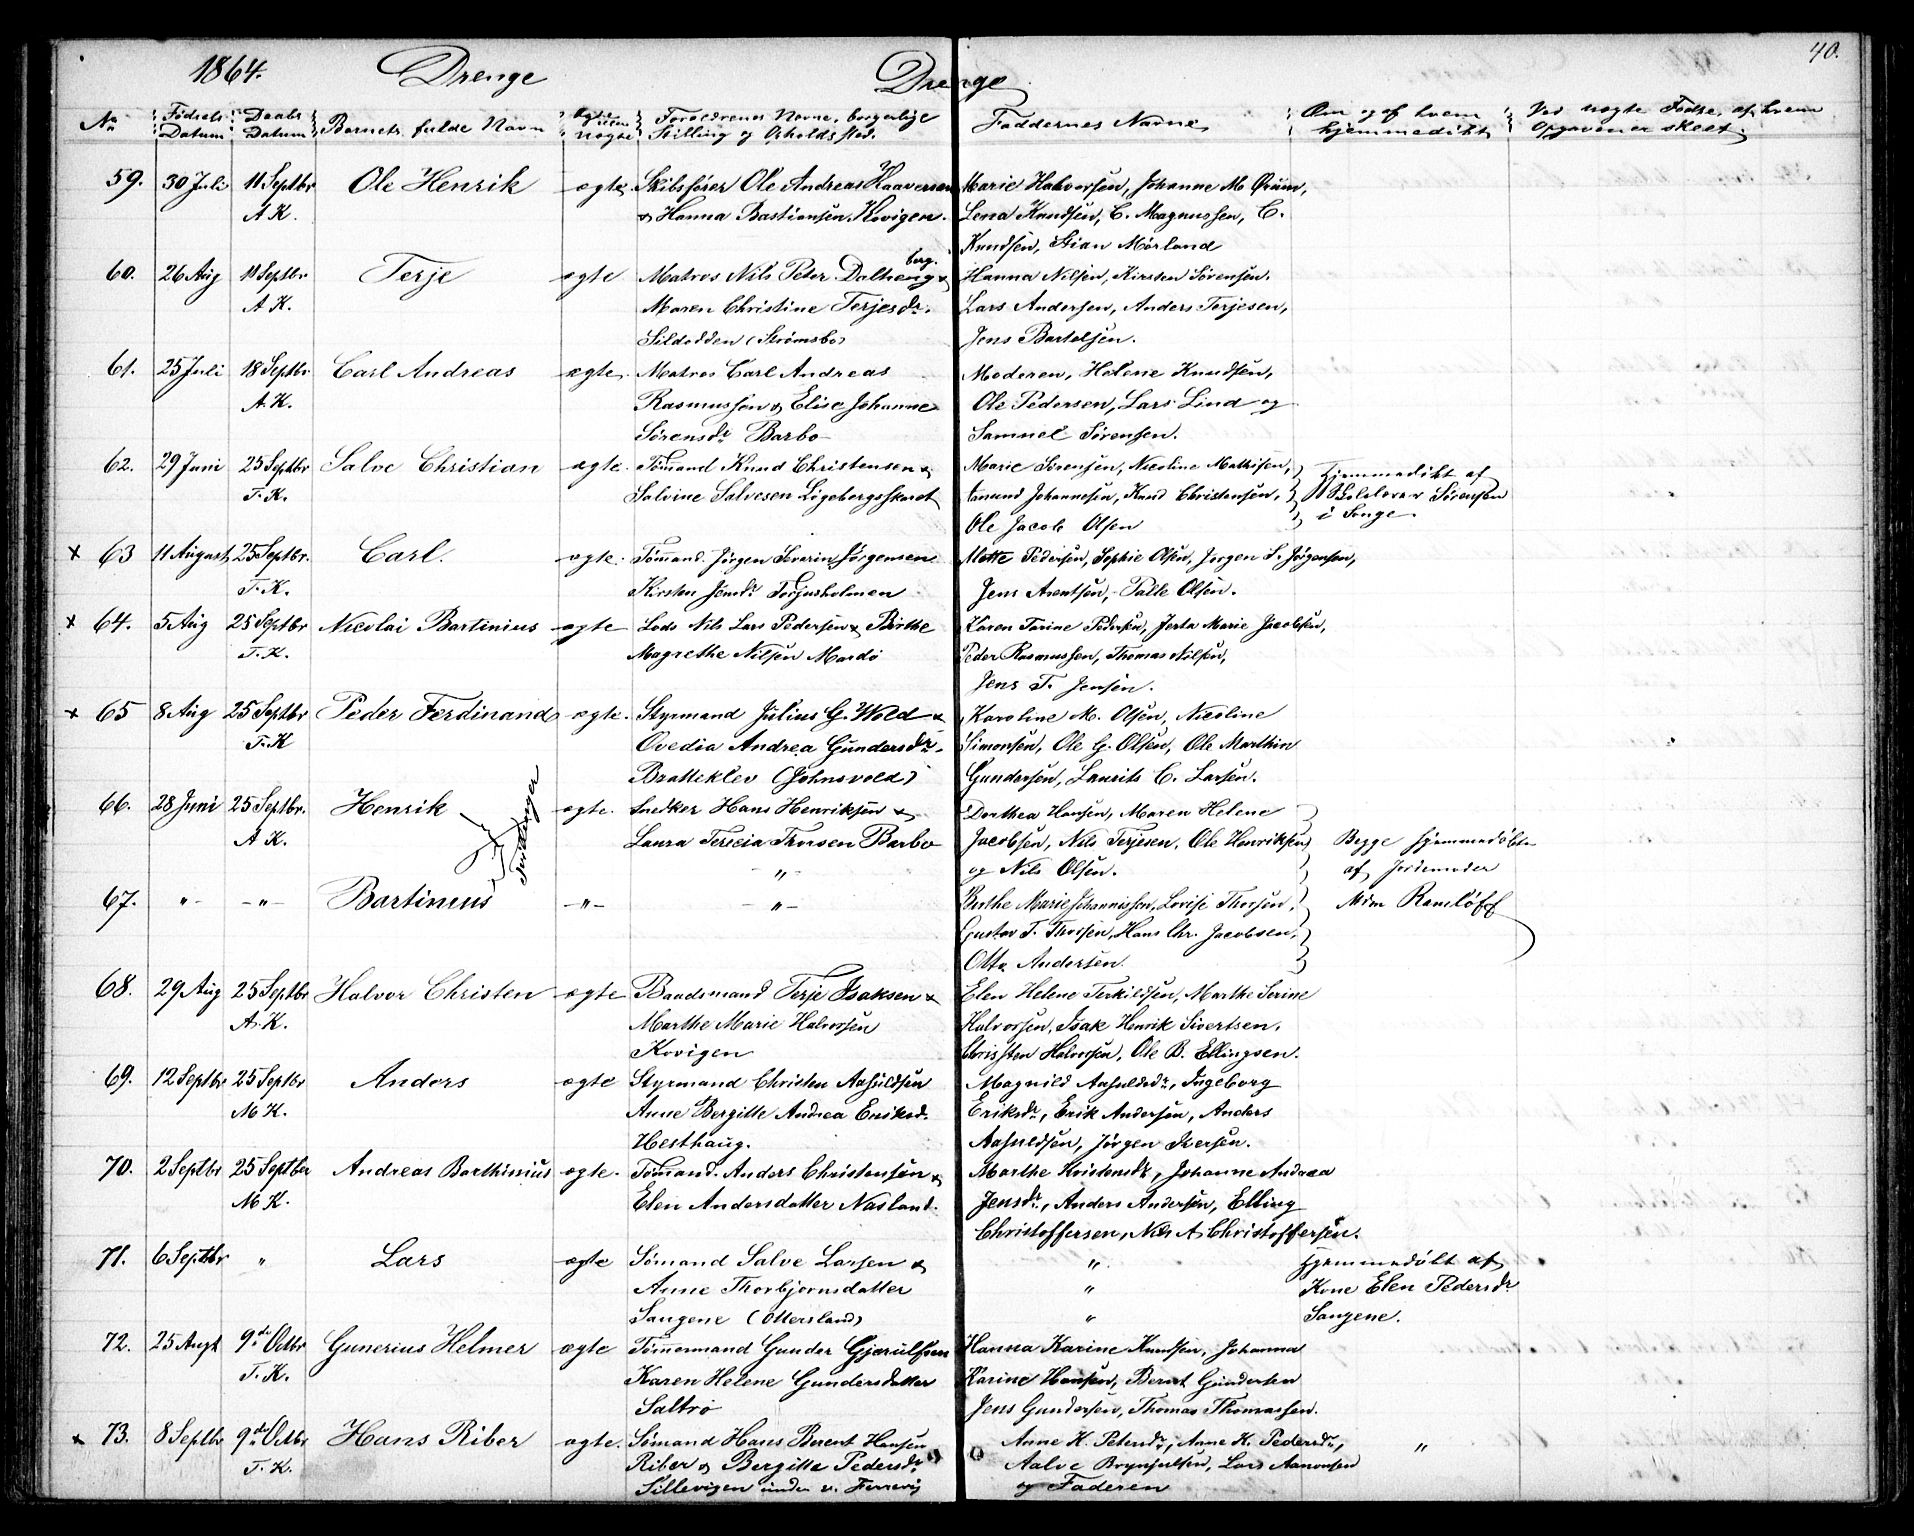 1864. Drenge Drenge 40.
No Fødsels Datum Daabs Datum Barnets fulde Navn Ægte eller uægte Forældrenes Navne, borgerlige Stilling og Opholds Sted. Faddernes Navne Om og af hvem hjemmedøbt Ved uægte Fødse, af hvem Opgaven er skeet.
59. 30 Juli 11 Septbr Ole Henrik ægte Skibsfører Ole Andreas Haaversen Marie Halvorsen, Johanne M. Ørum,
A K. & Hanna Bastiansen Kovigen. Lena Knudsen, C. Magnussen, C.
Knudsen, Stian Mørland
berg.
60. 26 Aug 18 Septbr Terje ægte Matros Nils Peter Dalheng & Hanna Nilsen, Kirsten Sørensen.
A K. Maren Christine Terjesdr. Lars Andersen, Anders Terjesen,
Sildodden (Strømsbo) Jens Bartelsen.
61. 25 Juli 18 Septbr Carl Andreas ægte. Matros Carl Andreas Moderen, Helene Knudsen,
A. K. Rasmussen & Elise Johanne Ole Pedersen, Lars Lind og
Sørensdr Barbo Samuel Sørensen.
62. 29 Juni 25 Septbr Salve Christian ægte. Tømand Knud Christensen & Marie Sørensen, Nicoline Mathisen, Hjemmedøbt af
T. K. Salvine Salvesen Løgebergsskaret Amund Johannesen, Knud Christensen, Skolelærer Sørensen
Ole Jacob Olsen i Songe.
x 63 11 August 25 Septbr. Carl. ægte. Tømand. Jørgen Severin Jørgensen Mette Pedersen, Sophie Olsen, Jørgen S. Jørgensen,
T. K. Kirsten Jensdr Torjusholmen Jens Arentsen, Palle Olsen.
x 64. 5 Aug 25 Septbr Nicolai Bartinius ægte Lods Nils Lars Pedersen & Birthe Karen Tarine Pedersen, Jerta Marie Jacobsen,
T. K. Magrethe Nilsen Mardø Peder Rasmussen, Thomas Nilsen,
Jens T. Jensen.
x 65 8 Aug 25 Septbr Peder Ferdinand ægte. Styrmand Julius G. Wold & Karoline M. Olsen, Nicoline
T. K Ovedia Andrea Gundersdr. Simonsen, Ole G. Olsen, Ole Marthin
Bratteklev (Johnsvold) Gundersen, Laurits C. Larsen.
66. 28 Juni 25 Septbr. Henrik Tvillinger ægte. Snedker Hans Henriksen & Dorthea Hansen, Maren Helene
A K. Laura Tericia Thorsen Barbo Jacobsen, Nils Terjesen, Ole Henriksen Begge hjemmedøbte
" og Nils Olsen. af Jordemoder
67. " " Bartineus " " Berthe Marie Johannessen, Lovise Thorsen, Mdm Ramløff
Gustav T. Thorsen, Hans Chr. Jacobsen,
Otto Andersen.
68. 29 Aug 25 Septbr Halvor Christen ægte Baadsmand Terje Isaksen & Elen Helene Terkildsen, Marthe Serine
A. K. Marthe Marie Halvorsen Halvorsen, Isak Henrik Sivertsen.
Kovigen Christen Halvorsen, Ole B. Ellingsen.
69. 12 Septbr 25 Septbr Anders ægte Styrmand Christen Aasuldsen Magnild Aasuldsdr, Ingeborg
M K. Anne Bergitte Andrea Eriksd. Eriksdr, Erik Andersen, Anders
Hesthaug. Aasuldsen, Jørgen Iversen.
70. 2 Septbr 25 Septber Andreas Barthinius ægte. Tømand. Anders Christensen & Marthe Kristensdr, Johanne Andrea
M K. Elen Andersdatter Næsland. Jensdr., Anders Andersen, Elling
Christoffersen, Nils A. Christoffersen.
71. 6 Septbr " Lars ægte Sømand Salve Larsen & " Hjemmedøbt af
Anne Thorbjørnsdatter " Kone Elen Pedersdr
Sangene (Ottersland) " Sangene.
72. 25 Augt 9de Octbr Gunerius Helmer ægte Tømmermand Gunder Gjerulfsen Hanna Karine Knudsen, Johanna
T. K. Karen Helene Gundersdatter Karine Hansen, Berent Gundersen
Saltrø Jens Gundersen, Thomas Thomassen.
x 73. 8 Septbr 9de Octbr Hans Riber ægte. Sømand Hans Berent Hansen Anne K. Petersdr, Anne K. Pedersdr, "
T. K. Riber & Bergitte Pedersdr Aalve Brynjulsen, Lars Aanonsen
Sillevigen under v. Færevig og Faderen